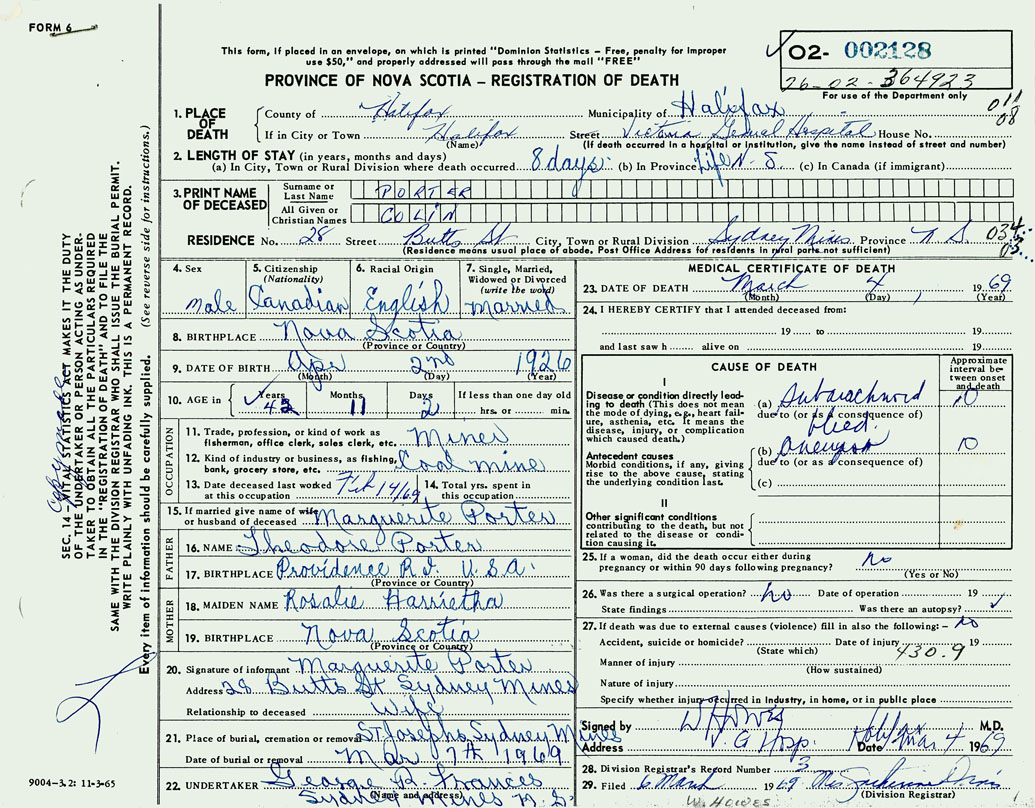 FORM 6
This form, if placed in an envelope, on which is printed "Dominion Statistics – Free, penalty for improper
use $50," and properly addressed will pass through the mail "FREE"
PROVINCE OF NOVA SCOTIA – REGISTRATION OF DEATH
O2- 002128
26-02-364923
For use of the Department only
011
08
1. PLACE OF DEATH
County of Halifax Municipality of Halifax
If in City or Town Halifax Street Victoria General Hospital House No.
(Name) (If death occurred in a hospital or institution, give the name instead of street and number)
2. LENGTH OF STAY (in years, months and days)
(a) In City, Town or Rural Division where death occurred 8 days (b) In Province Life N.S. (c) In Canada (if immigrant)
3. PRINT NAME OF DECEASED
Surname or Last Name PORTER
All Given or Christian Names COLIN
RESIDENCE No. 28 Street Butts St City, Town or Rural Division Sydney Mines Province N.S. 034
(Residence means usual place of abode. Post Office Address for residents in rural parts not sufficient)
4. Sex Male
5. Citizenship (Nationality) Canadian
6. Racial Origin English
7. Single, Married, Widowed or Divorced (write the word) Married
8. BIRTHPLACE Nova Scotia
(Province or Country)
9. DATE OF BIRTH Apr 2nd 1926
(Month) (Day) (Year)
10. AGE in Years 42 Months 11 Days 2 If less than one day old hrs. or min.
OCCUPATION
11. Trade, profession, or kind of work as fisherman, office clerk, sales clerk, etc. Miner
12. Kind of industry or business, as fishing, bank, grocery store, etc. Coal mine
13. Date deceased last worked at this occupation Feb 14/69 14. Total yrs. spent in this occupation
15. If married give name of wife or husband of deceased Marguerite Porter
FATHER
16. NAME Theodore Porter
17. BIRTHPLACE Providence R.I. U.S.A.
(Province or Country)
MOTHER
18. MAIDEN NAME Rosalie Harrietha
19. BIRTHPLACE Nova Scotia
(Province or Country)
20. Signature of informant Marguerite Porter
Address 28 Butts St Sydney Mines
Relationship to deceased Wife
21. Place of burial, cremation or removal St Josephs, Sydney Mines
Date of burial or removal Mar 7th 1969
22. UNDERTAKER George R. Frances
(Name and address) Sydney Mines N.S.
MEDICAL CERTIFICATE OF DEATH
23. DATE OF DEATH March 4, 1969
(Month) (Day) (Year)
24. I HEREBY CERTIFY that I attended deceased from:
19 to 19
and last saw h alive on 19
CAUSE OF DEATH
Approximate interval between onset and death
I
Disease or condition directly leading to death (This does not mean the mode of dying, e.g., heart failure, asthenia, etc. It means the disease, injury, or complication which caused death.)
(a) Subarachnoid 10
due to (or as a consequence of)
bleed.
Antecedent causes
Morbid conditions, if any, giving rise to the above cause, stating the underlying condition last.
(b) aneurysm 10
due to (or as a consequence of)
(c)
II
Other significant conditions contributing to the death, but not related to the disease or condition causing it.
25. If a woman, did the death occur either during pregnancy or within 90 days following pregnancy? No
(Yes or No)
26. Was there a surgical operation? no Date of operation 19
State findings Was there an autopsy? ✓
27. If death was due to external causes (violence) fill in also the following: – no
Accident, suicide or homicide? Date of injury 19
(State which) 430.9
Manner of injury
(How sustained)
Nature of injury
Specify whether injury occurred in industry, in home, or in public place
Signed by W Howes M.D.
Address V. G Hosp. Halifax Date Mar 4 1969
28. Division Registrar's Record Number 3
29. Filed 6 March 1969
(Division Registrar)
W. HOWES
SEC. 14 – VITAL STATISTICS ACT MAKES IT THE DUTY
OF THE UNDERTAKER OR PERSON ACTING AS UNDER-
TAKER TO OBTAIN ALL THE PARTICULARS REQUIRED
IN THE "REGISTRATION OF DEATH" AND TO FILE THE
SAME WITH THE DIVISION REGISTRAR WHO SHALL ISSUE THE BURIAL PERMIT.
WRITE PLAINLY WITH UNFADING INK. THIS IS A PERMANENT RECORD.
Every item of information should be carefully supplied. (See reverse side for instructions.)
9004–3.2: 11-3-65